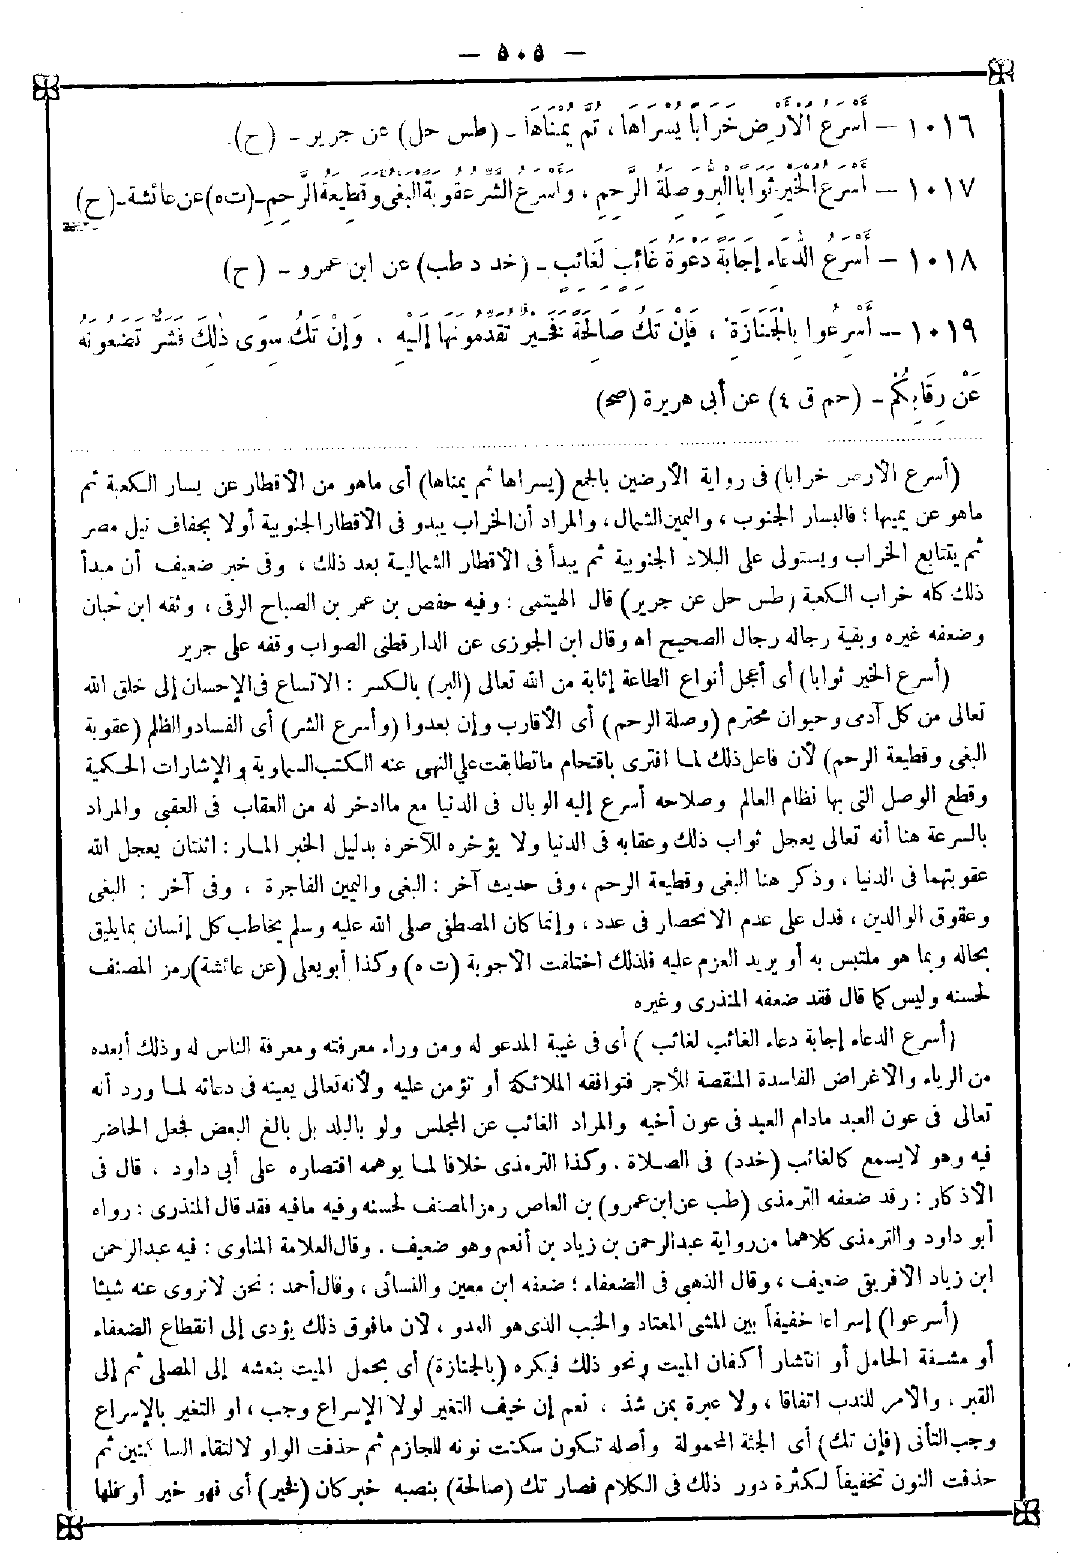 — ٥٠٥ —
١٠١٦ — أَسْرَعُ الْأَرْضِ خَرَابًا يُسْرَاهَا، ثُمَّ يُمْنَاهَا - (طس حل) عن جرير - (ح)
١٠١٧ — أَسْرَعُ الْخَيْرِ ثَوَابًا الْبِرُّ وَصِلَةُ الرَّحِمِ، وَأَسْرَعُ الشَّرِّ عُقُوبَةً الْبَغْيُ وَقَطِيعَةُ الرَّحِمِ - (ت ه) عن عائشة - (ح)
١٠١٨ — أَسْرَعُ الدُّعَاءِ إِجَابَةً دَعْوَةُ غَائِبٍ لِغَائِبٍ - (خد د طب) عن ابن عمرو - (ح)
١٠١٩ — أَسْرِعُوا بِالْجَنَازَةِ، فَإِنْ تَكُ صَالِحَةً فَخَيْرٌ تُقَدِّمُونَهَا إِلَيْهِ. وَإِنْ تَكُ سِوَى ذَلِكَ فَشَرٌّ تَضَعُونَهُ
عَنْ رِقَابِكُمْ - (حم ق ٤) عن أبى هريرة (صح)
(أسرع الأرض خرابا) فى رواية الأرضين بالجمع (يسراها ثم يمناها) أى ماهو من الأقطار عن يسار الكعبة ثم
ماهو عن يمينها؛ فاليسار الجنوب، واليمين الشمال، والمراد أن الخراب يبدو فى الأقطار الجنوبية أولا بجفاف نيل مصر
ثم يتتابع الخراب ويستولى على البلاد الجنوبية ثم يبدأ فى الأقطار الشمالية بعد ذلك، وفى خبر ضعيف أن مبدأ
ذلك كله خراب الكعبة (طس حل عن جرير) قال الهيتمى: وفيه حفص بن عمر بن الصباح الرقى، وثقه ابن حبان
وضعفه غيره وبقية رجاله رجال الصحيح اه وقال ابن الجوزى عن الدارقطنى الصواب وقفه على جرير
(أسرع الخير ثوابا) أى أعجل أنواع الطاعة إثابة من الله تعالى (البر) بالكسر: الاتساع فى الإحسان إلى خلق الله
تعالى من كل آدمى وحيوان محترم (وصلة الرحم) أى الأقارب وإن بعدوا (وأسرع الشر) أى الفساد والظلم (عقوبة
البغى وقطيعة الرحم) لأن فاعل ذلك لما افترى باقتحام ما تطابقت على النهى عنه الكتب السماوية والإشارات الحكمية
وقطع الوصل التى بها نظام العالم وصلاحه أسرع إليه الوبال فى الدنيا مع ما ادخر له من العقاب فى العقبى والمراد
بالسرعة هنا أنه تعالى يعجل ثواب ذلك وعقابه فى الدنيا ولا يؤخره للآخرة بدليل الخبر المار: اثنتان يعجل الله
عقوبتهما فى الدنيا، وذكر هنا البغى وقطيعة الرحم، وفى حديث آخر: البغى واليمين الفاجرة، وفى آخر: البغى
وعقوق الوالدين، فدل على عدم الانحصار فى عدد، وإنما كان المصطفى صلى الله عليه وسلم يخاطب كل إنسان بما يليق
بحاله وبما هو ملتبس به أو يريد العزم عليه فلذلك اختلفت الأجوبة (ت ه) وكذا أبو يعلى (عن عائشة) رمز المصنف
لحسنه وليس كما قال فقد ضعفه المنذرى وغيره
(أسرع الدعاء إجابة دعاء الغائب لغائب) أى فى غيبة المدعو له ومن وراء معرفته ومعرفة الناس له وذلك أبعده
من الرياء والأغراض الفاسدة المنقصة للأجر فتوافقه الملائكة أو تؤمن عليه ولأنه تعالى يعينه فى دعائه لما ورد أنه
تعالى فى عون العبد مادام العبد فى عون أخيه والمراد الغائب عن المجلس ولو بالبلد بل بالغ البعض فجعل الحاضر
فيه وهو لا يسمع كالغائب (خدد) فى الصلاة. وكذا الترمذى خلافا لما يوهمه اقتصاره على أبى داود، قال فى
الأذكار: وقد ضعفه الترمذى (طب عن ابن عمرو) بن العاص رمز المصنف لحسنه وفيه مافيه فقد قال المنذرى: رواه
أبو داود والترمذى كلاهما من رواية عبدالرحمن بن زياد بن أنعم وهو ضعيف. وقال العلامة المناوى: فيه عبدالرحمن
ابن زياد الأفريقى ضعيف، وقال الذهبى فى الضعفاء؛ ضعفه ابن معين والنسائى، وقال أحمد: نحن لانروى عنه شيئا
(أسرعوا) إسراعا خفيفاً بين المشى المعتاد والخبب الذى هو العدو، لأن مافوق ذلك يؤدى إلى انقطاع الضعفاء
أو مشقة الحامل أو انتشار أكفان الميت ونحو ذلك فيكره (بالجنازة) أى بحمل الميت بنعشه إلى المصلى ثم إلى
القبر، والأمر للندب اتفاقا، ولا عبرة بمن شذ، نعم إن خيف التغير لولا الإسراع وجب، أو التغير بالإسراع
وجب التأنى (فإن تك) أى الجثة المحمولة وأصله تكون سكنت نونه للجازم ثم حذفت الواو لالتقاء الساكنين ثم
حذفت النون تخفيفاً لكثرة دور ذلك فى الكلام فصار تك (صالحة) بنصبه خبر كان (فخير) أى فهو خير أو فلها